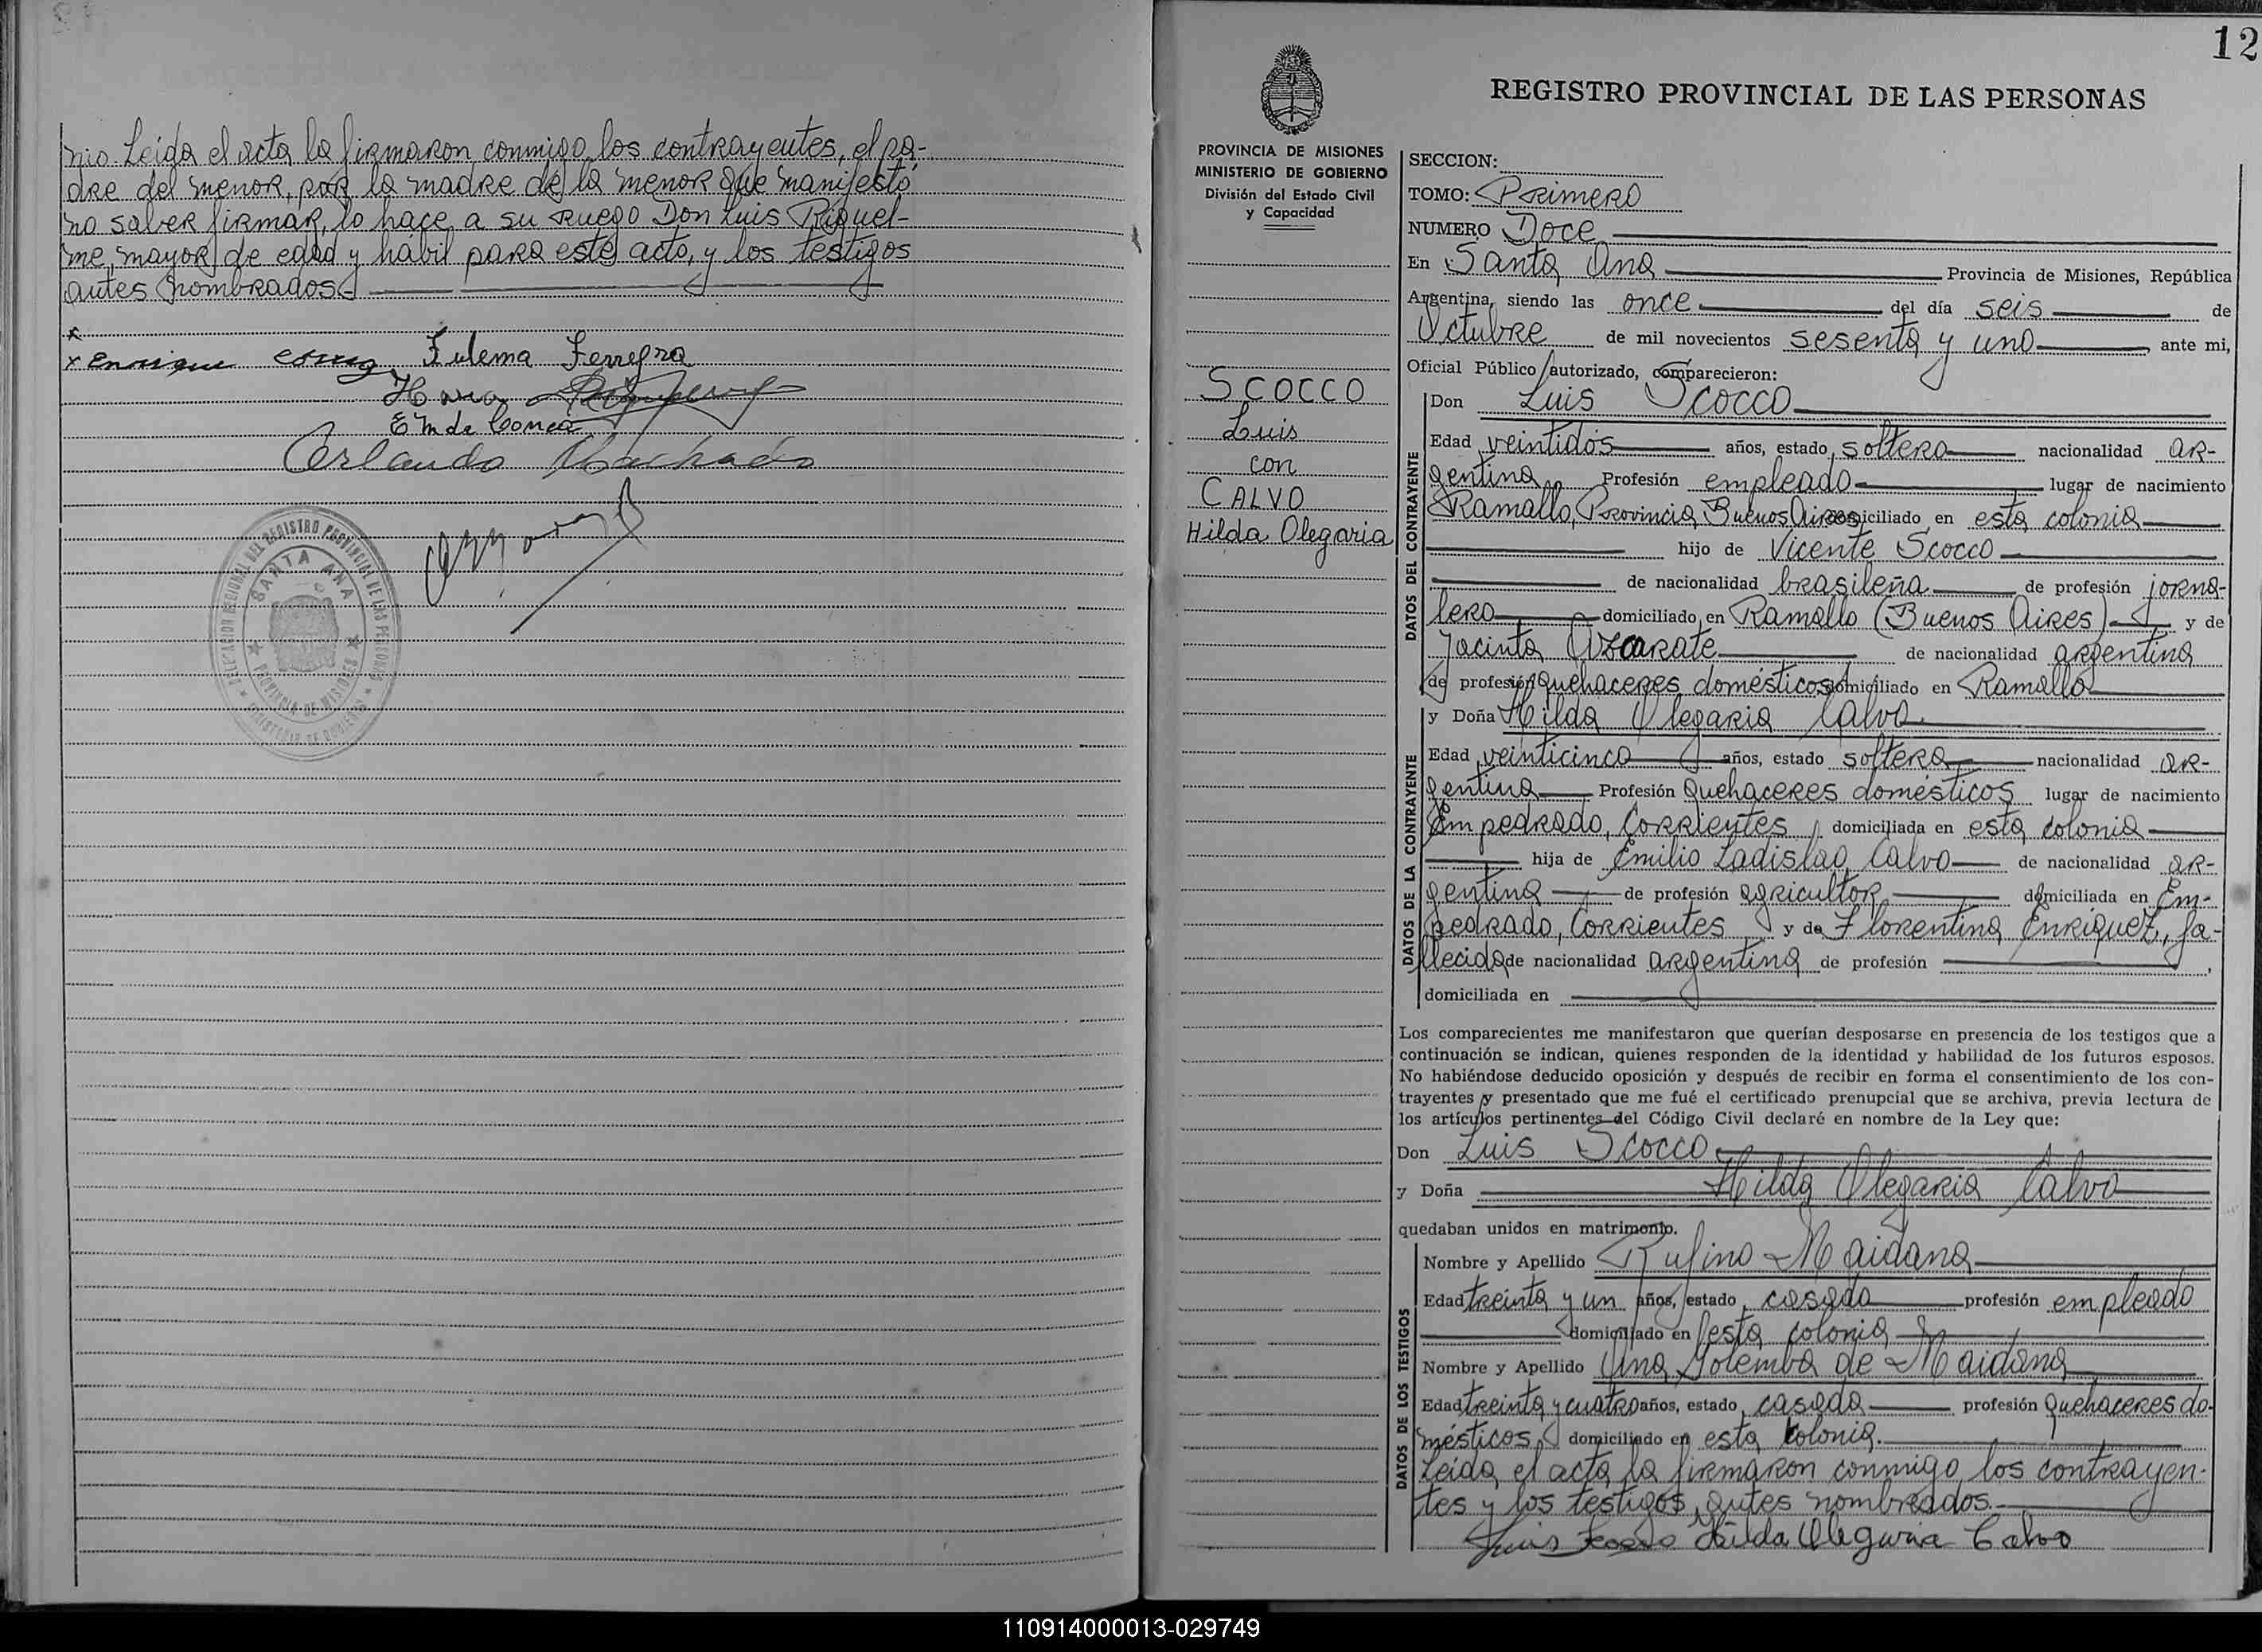 nio. Leída el acta la firmaron conmigo los contrayentes, el pa-
dre del menor, por la madre de la menor que manifestó
no saber firmar, lo hace a su ruego Don Luis Riquel-
me, mayor de edad y hábil para este acto, y los testigos
antes nombrados
x
x Enrique
Zulema Ferreyra
Orlando Machado
DELEGACION REGIONAL DEL REGISTRO PROVINCIAL DE LAS PERSONAS
SANTA ANA
PROVINCIA DE MISIONES
MINISTERIO DE GOBIERNO
12
REGISTRO PROVINCIAL DE LAS PERSONAS
PROVINCIA DE MISIONES
MINISTERIO DE GOBIERNO
División del Estado Civil
y Capacidad
SCOCCO
Luis
con
CALVO
Hilda Olegaria
SECCION:
TOMO: Primero
NUMERO Doce
En Santa Ana Provincia de Misiones, República
Argentina, siendo las once del día seis de
Octubre de mil novecientos sesenta y uno, ante mi,
Oficial Público autorizado, comparecieron:
DATOS DEL CONTRAYENTE
Don Luis Scocco
Edad veintidós años, estado soltero nacionalidad ar-
gentina Profesión empleado lugar de nacimiento
Ramallo, Provincia Buenos Aires domiciliado en esta colonia
hijo de Vicente Scocco
de nacionalidad brasileña de profesión jorna-
lero domiciliado en Ramallo (Buenos Aires) y de
Jacinta Azcarate de nacionalidad argentina
de profesión quehaceres domésticos domiciliado en Ramallo
y Doña Hilda Olegaria Calvo
DATOS DE LA CONTRAYENTE
Edad veinticinco años, estado soltera nacionalidad ar-
gentina Profesión quehaceres domésticos lugar de nacimiento
Empedrado, Corrientes, domiciliada en esta colonia
hija de Emilio Ladislao Calvo de nacionalidad ar-
gentina de profesión agricultor domiciliada en Em-
pedrado, Corrientes y de Florentina Enriquez, fa-
llecida de nacionalidad argentina de profesión ,
domiciliada en
Los comparecientes me manifestaron que querían desposarse en presencia de los testigos que a
continuación se indican, quienes responden de la identidad y habilidad de los futuros esposos.
No habiéndose deducido oposición y después de recibir en forma el consentimiento de los con-
trayentes y presentado que me fué el certificado prenupcial que se archiva, previa lectura de
los artículos pertinentes del Código Civil declaré en nombre de la Ley que:
Don Luis Scocco
y Doña Hilda Olegaria Calvo
quedaban unidos en matrimonio.
DATOS DE LOS TESTIGOS
Nombre y Apellido Rufino Maidana
Edad treinta y un años, estado casado profesión empleado
domiciliado en esta colonia
Nombre y Apellido Ana Golemba de Maidana
Edad treinta y cuatro años, estado casada profesión quehaceres do-
mésticos, domiciliado en esta colonia.
Leída el acta, la firmaron conmigo los contrayen-
tes y los testigos antes nombrados.
Luis Scocco Hilda Olegaria Calvo
110914000013-029749